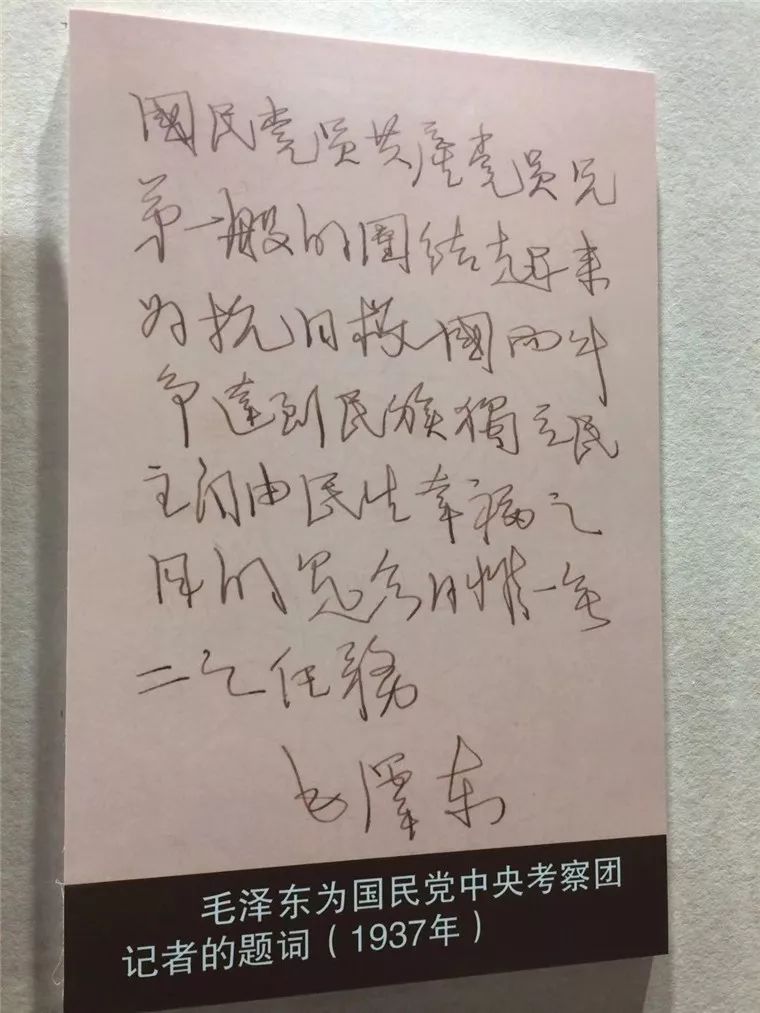 國民党员共產党员兄
弟一般的團结起来
为抗日救國而斗
争達到民族獨立民
主自由民生幸福之
目的是今日惟一无
二之任務
毛澤东
毛泽东为国民党中央考察团
记者的题词（1937年）